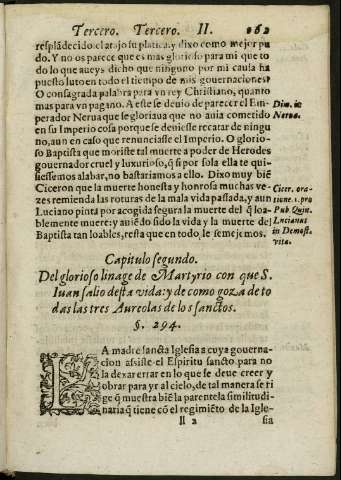 Tercero. Tercero. II. 262
resplādecido: atajo su platica: y dixo como mejor pu
do. Y no os parece que es mas glorioso para mi que to
do lo que aueys dicho que ninguno por mi causa ha
puesto luto en todo el tiempo de mis gouernaciones?
O consagrada palabra para vn rey Christiano, quanto
mas para vn pagano. A este se deuio de parecer el Em-
perador Nerua que se gloriaua que no auia cometido
en su Imperio cosa porque se deuiesse recatar de ningu
no, aun en caso que renunciasse el Imperio. O glorio-
so Baptista que moriste tal muerte a poder de Herodes
gouernador cruel y luxurioso, q̄ si por sola ella te qui-
siessemos alabar, no bastariamos a ello. Dixo muy biē
Ciceron que la muerte honesta y honrosa muchas ve-
zes remienda las roturas de la mala vida passada, y aun
Luciano pinta por acogida segura la muerte del q̄ loa-
blemente muere: y auiēdo sido la vida y la muerte del
Baptista tan loables, resta que en todo le semejemos.
Dion. in
Nerua.
Cicer. ora-
tione. 1. pro
Pub Quin.
Lucianus
in Demost.
vita.
Capitulo segundo.
Del glorioso linage de Martyrio con que S.
Iuan salio desta vida: y de como goza de to
das las tres Aureolas de los sanctos.
§. 294.
LA madre sancta Iglesia a cuya gouerna-
cion assiste el Espiritu sancto para no
la dexar errar en lo que se deue creer y
obrar para yr al cielo, de tal manera se ri
ge q̄ muestra biē la parentela similitudi-
naria q̄ tiene cō el regimiēto de la Igle-
ll 2 sia